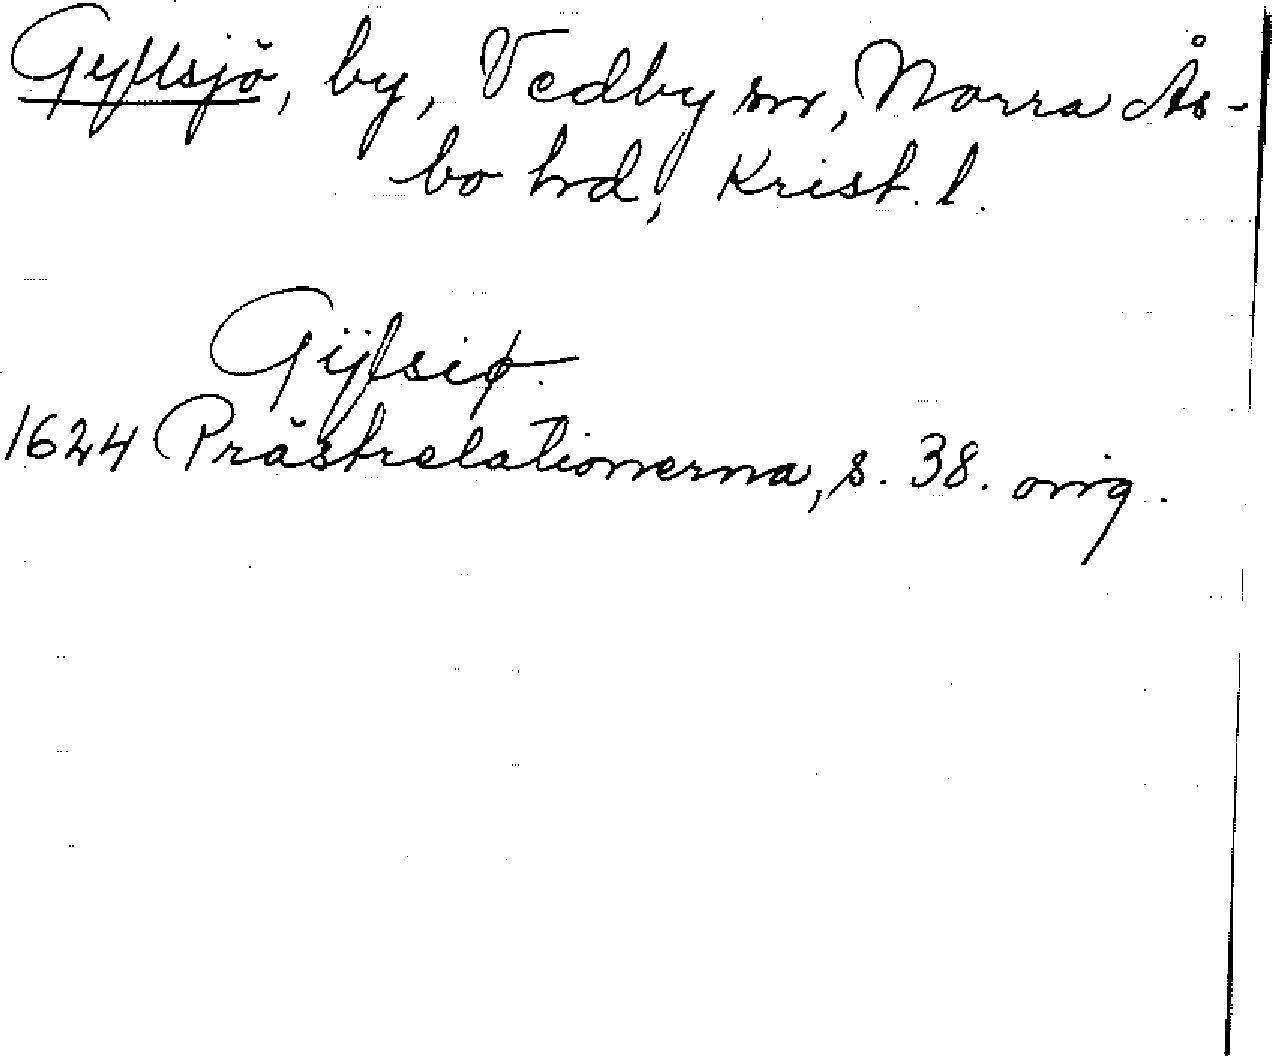 Gyltsjö, by, Vedby sn, Norra Ås-
bo hrd, Krist. l.
Gÿlsiø.
1624 Prästrelationerna, s. 38. orig.